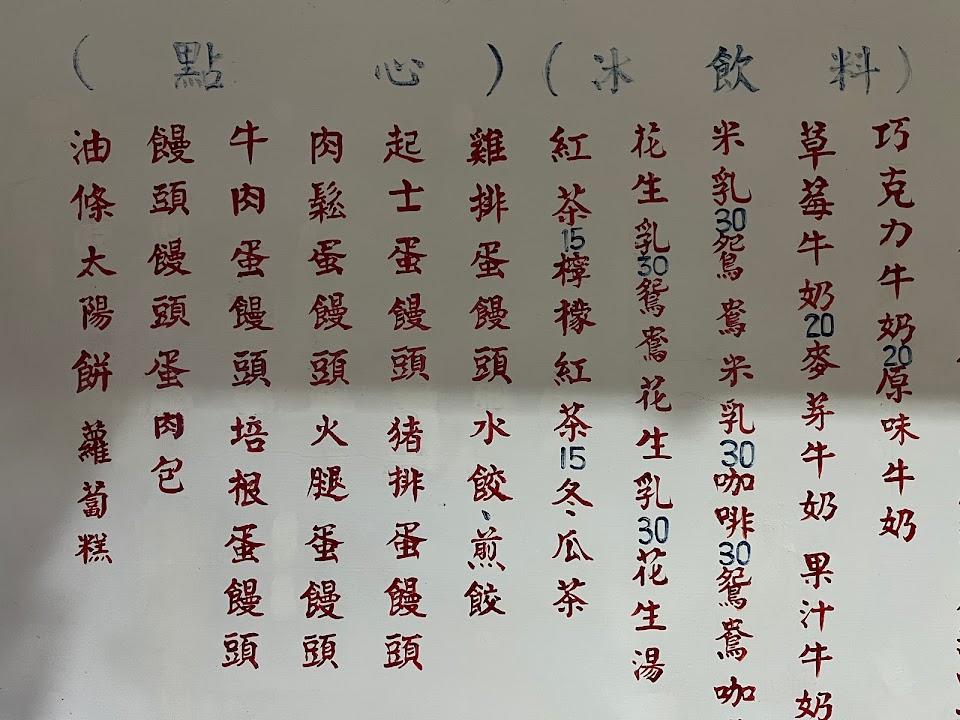 (冰飲料)
巧克力牛奶20原味牛奶
草莓牛奶20麥芽牛奶 果汁牛奶
米乳30鴛鴦米乳30咖啡30鴛鴦咖
花生乳30鴛鴦花生乳30花生湯
紅茶15檸檬紅茶15冬瓜茶
(點心)
雞排蛋饅頭 水餃、煎餃
起士蛋饅頭 猪排蛋饅頭
肉鬆蛋饅頭 火腿蛋饅頭
牛肉蛋饅頭 培根蛋饅頭
饅頭饅頭蛋肉包
油條太陽餅 蘿蔔糕